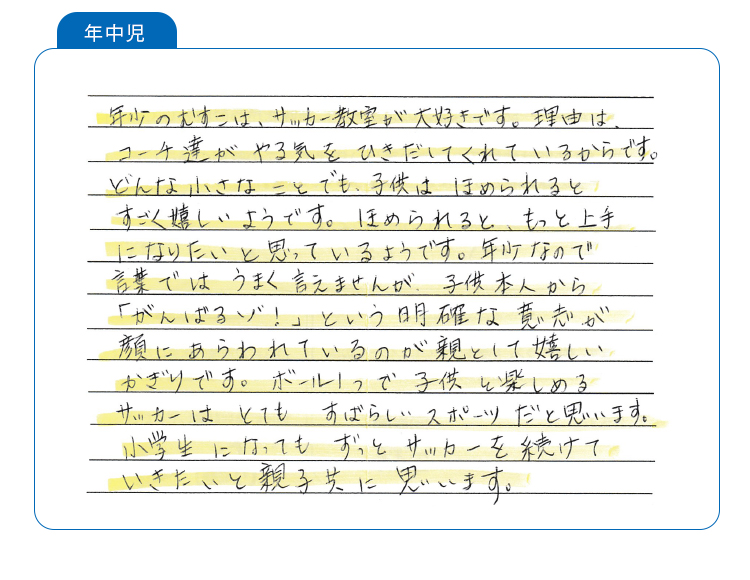 年中児
年少のむすこは、サッカー教室が大好きです。理由は、
コーチ達がやる気をひきだしてくれているからです。
どんな小さなことでも、子供はほめられると
すごく嬉しいようです。ほめられると、もっと上手
になりたいと思っているようです。年少なので
言葉ではうまく言えませんが、子供本人から
「がんばるゾ!」という明確な意志が
顔にあらわれているのが親として嬉しい
かぎりです。ボール1つで子供と楽しめる
サッカーはとてもすばらしいスポーツだと思います。
小学生になってもずっとサッカーを続けて
いきたいと親子共に思います。